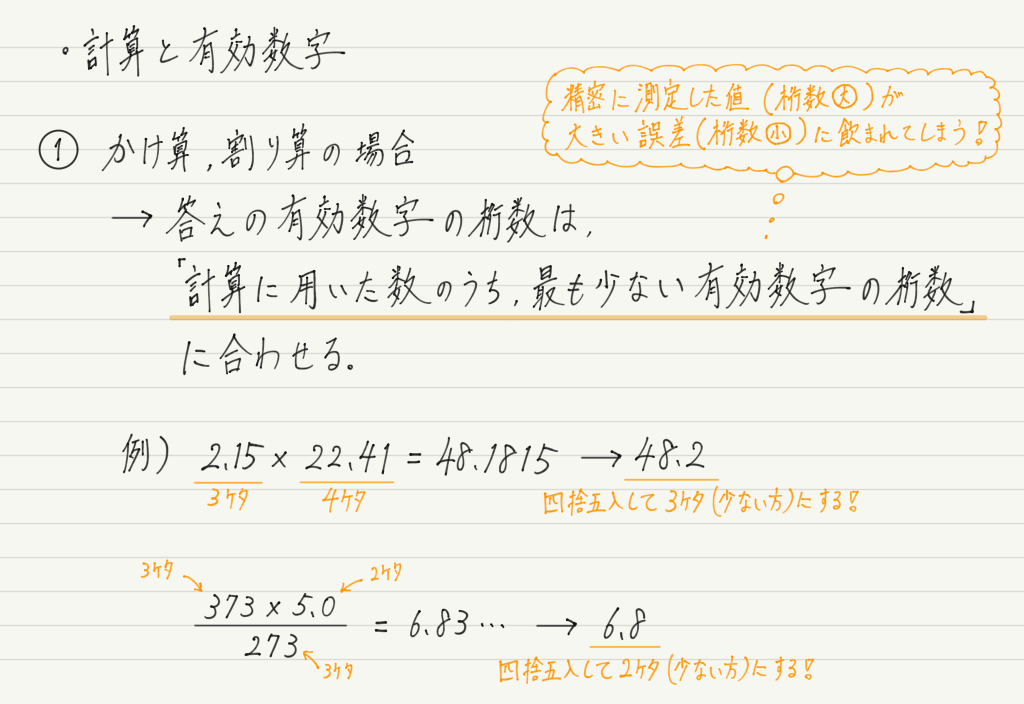 ・計算と有効数字
精密に測定した値(桁数大)が
大きい誤差(桁数小)に飲まれてしまう!
① かけ算,割り算の場合
→ 答えの有効数字の桁数は,
「計算に用いた数のうち,最も少ない有効数字の桁数」
に合わせる。
例) 2.15 × 22.41 = 48.1815 → 48.2
3ケタ 4ケタ 四捨五入して3ケタ(少ない方)にする!
3ケタ 2ケタ
373 × 5.0
= 6.83… → 6.8
273
3ケタ 四捨五入して2ケタ(少ない方)にする!